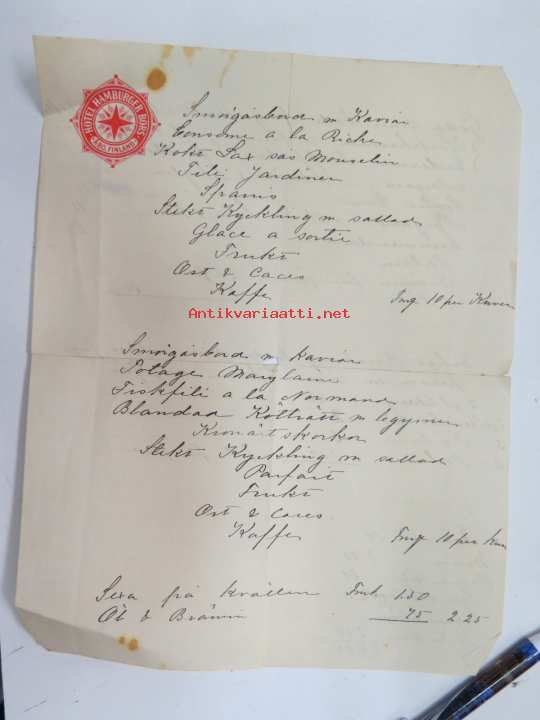 HOTEL HAMBURGER BÖRS
ÅBO, FINLAND
Smörgåsbord m Kaviar
Consomé a la Riche
Kokt Lax sås Mouselin
Filé Jardiner
Spanis
Stekt Kyckling m. sallad
Glace a sortie
Frukt
Ost & Caces
Kaffe
Fmk 10 per Kuver
Antikvariaatti.net
Smörgåsbord m kaviar
Potage Marylaine
Fiskfilé a la Normand
Blandad Kötträtt m legymer
Kronärtskockor
Stekt Kyckling m sallad
Parfait
Frukt
Ost & Caces
Kaffe
Fmk 10 per kuver
Sexa på kvällen Fmk 1.50
Öl & Bränvin 75 2 25